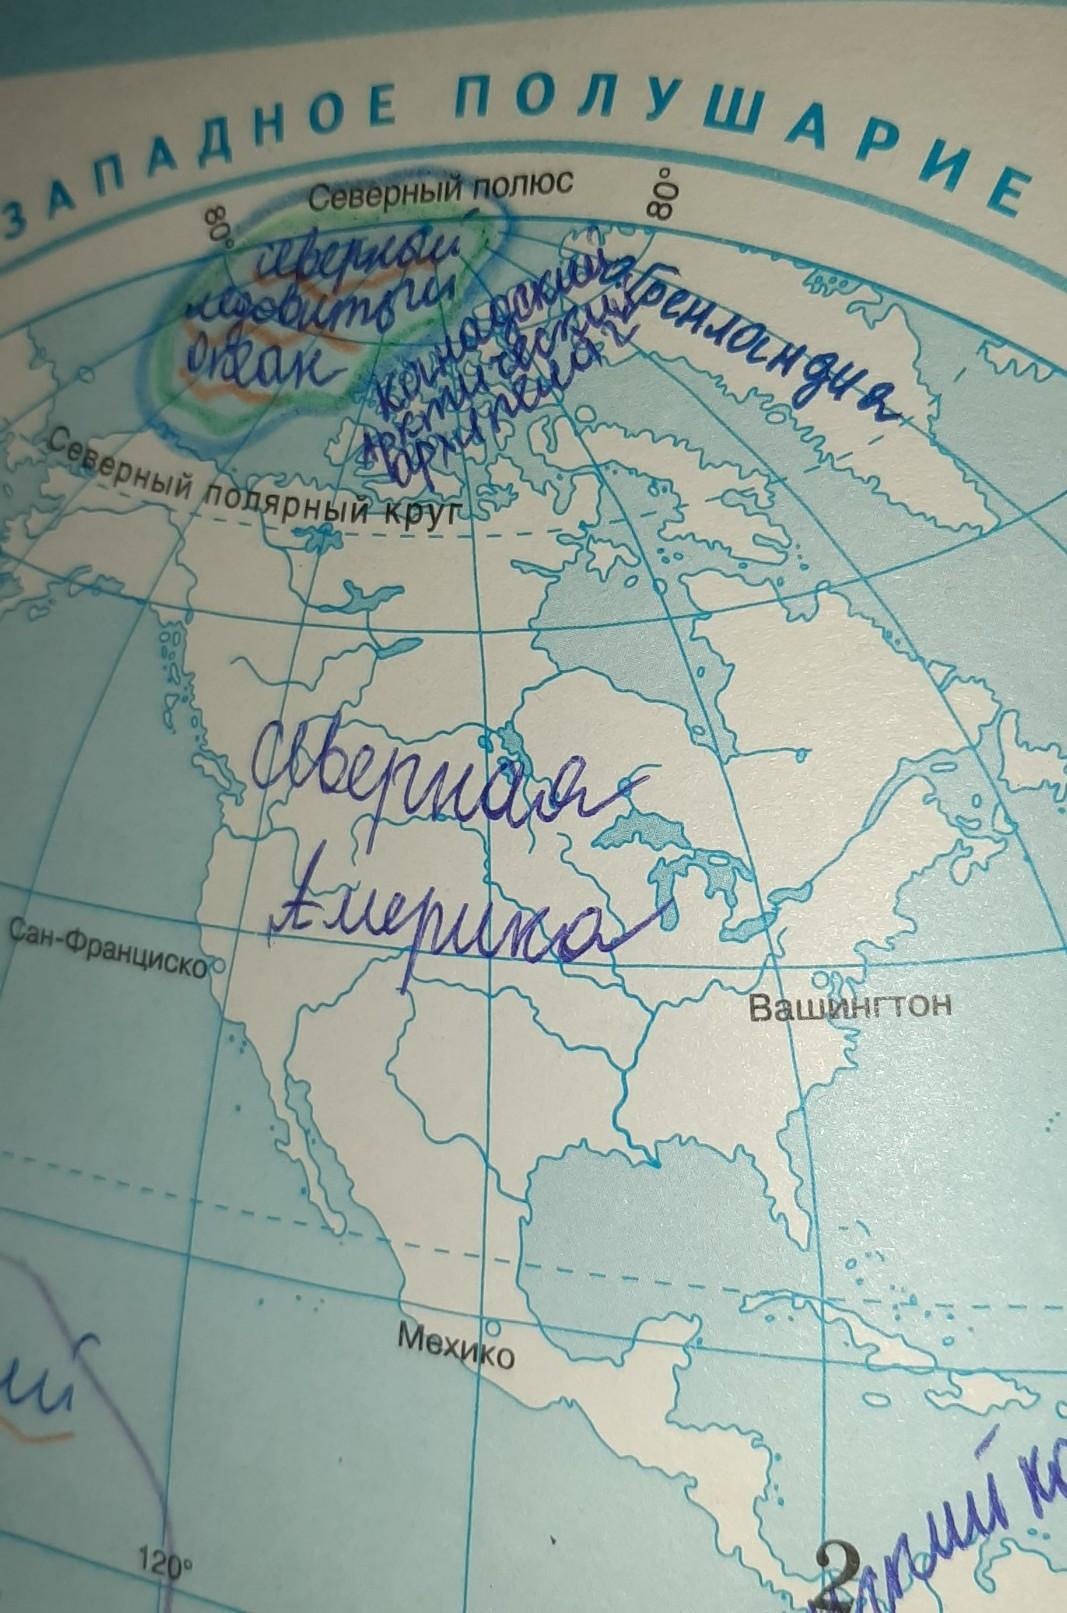 ЗАПАДНОЕ ПОЛУШАРИЕ
Северный полюс
80°
80°
северный
ледовитый
океан
Канадский
арктический
архипелаг
Гренландия
Северный полярный круг
Северная
Америка
Сан-Франциско
Вашингтон
Мехико
ий
120°
2